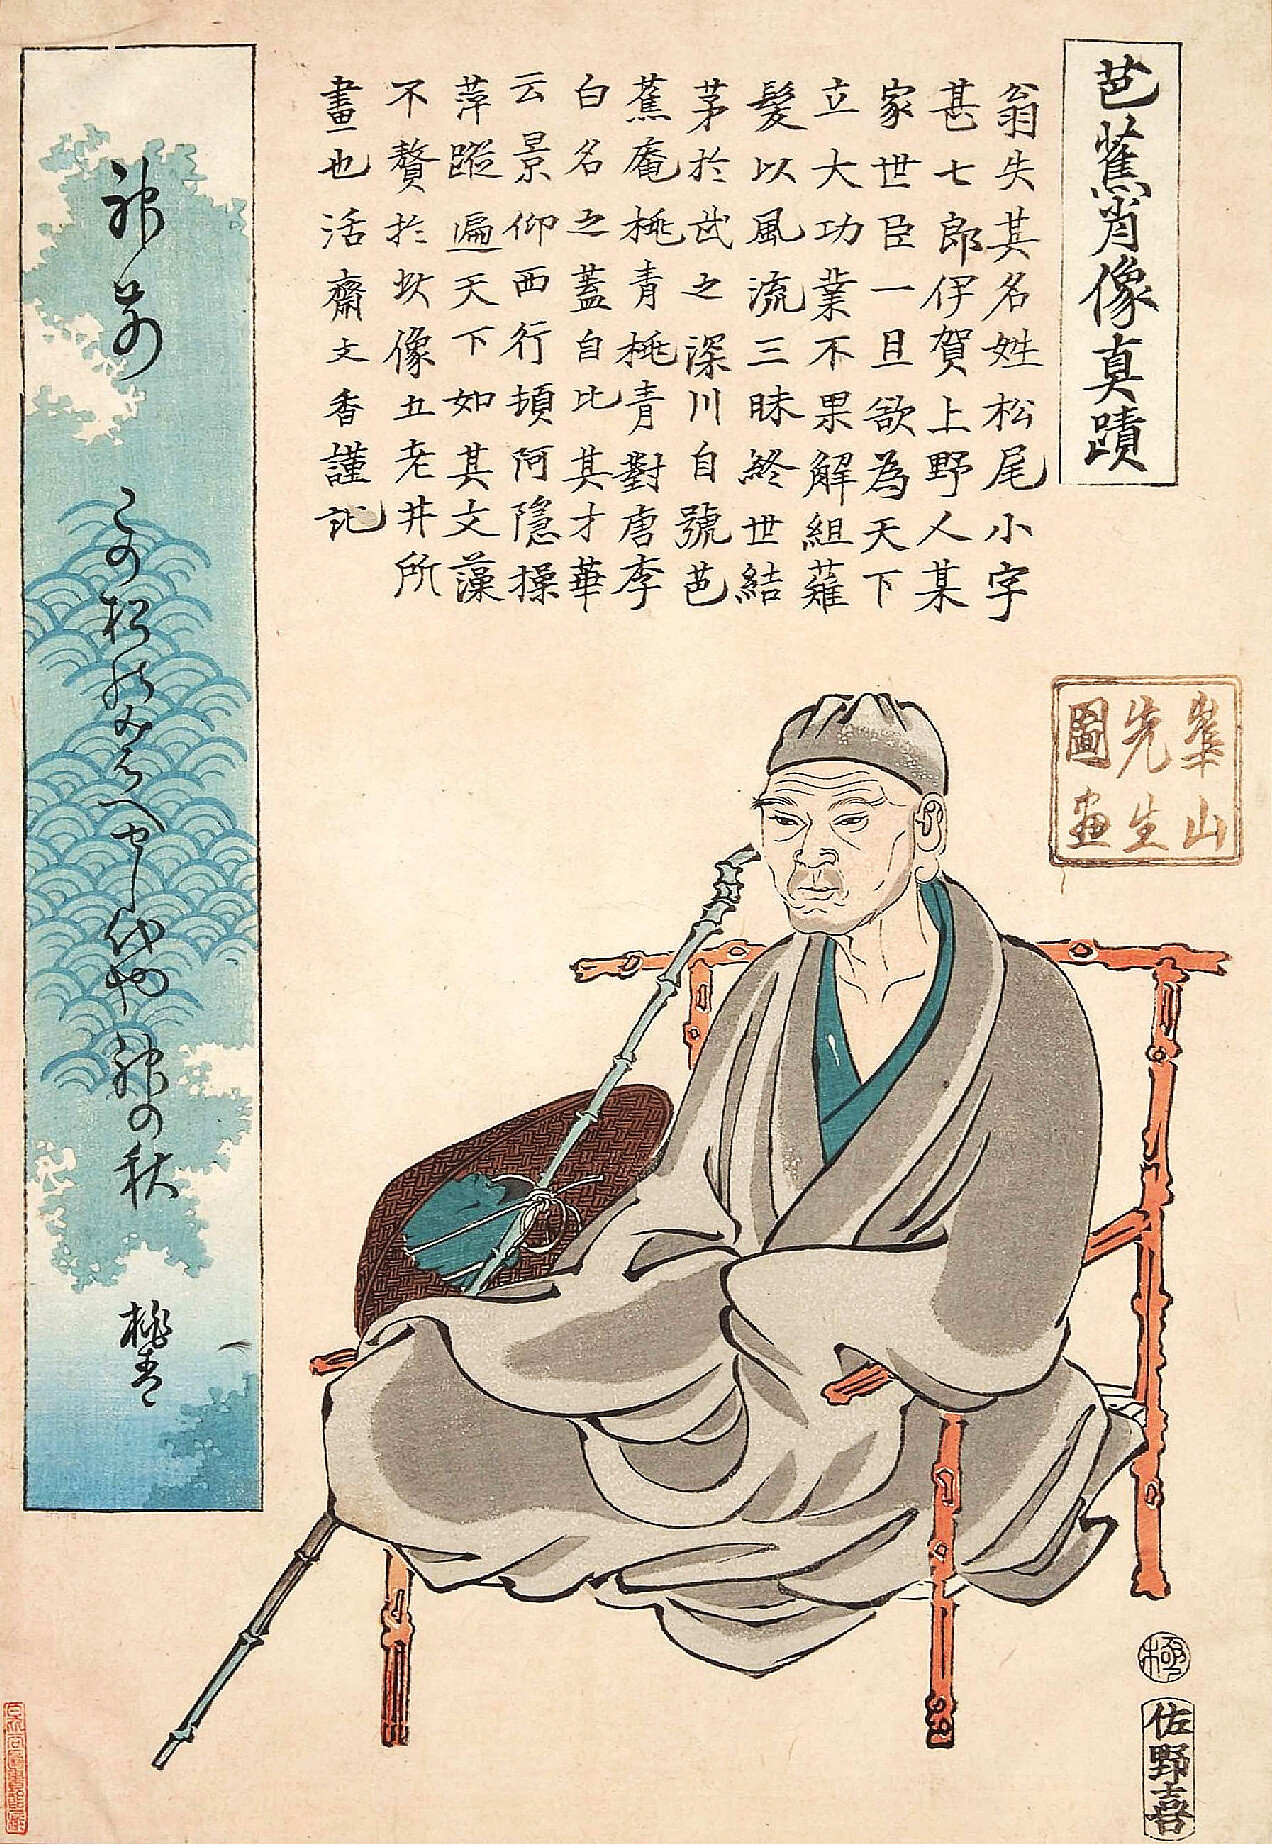 芭蕉肖像真蹟
翁失其名姓松尾小字
甚七郎伊賀上野人某
家世臣一旦欲為天下
立大功業不果解組薙
髮以風流三昧終世結
茅於武之深川自號芭
蕉庵桃青桃青對唐李
白名之蓋自比其才華
云景仰西行頓阿隱操
萍蹤遍天下如其文藻
不贅於此像五老井所
畫也活齋文香謹記
崋山
先生
圖画
神前
この松のみはへせし代や神の秋
桃青
極
佐野喜